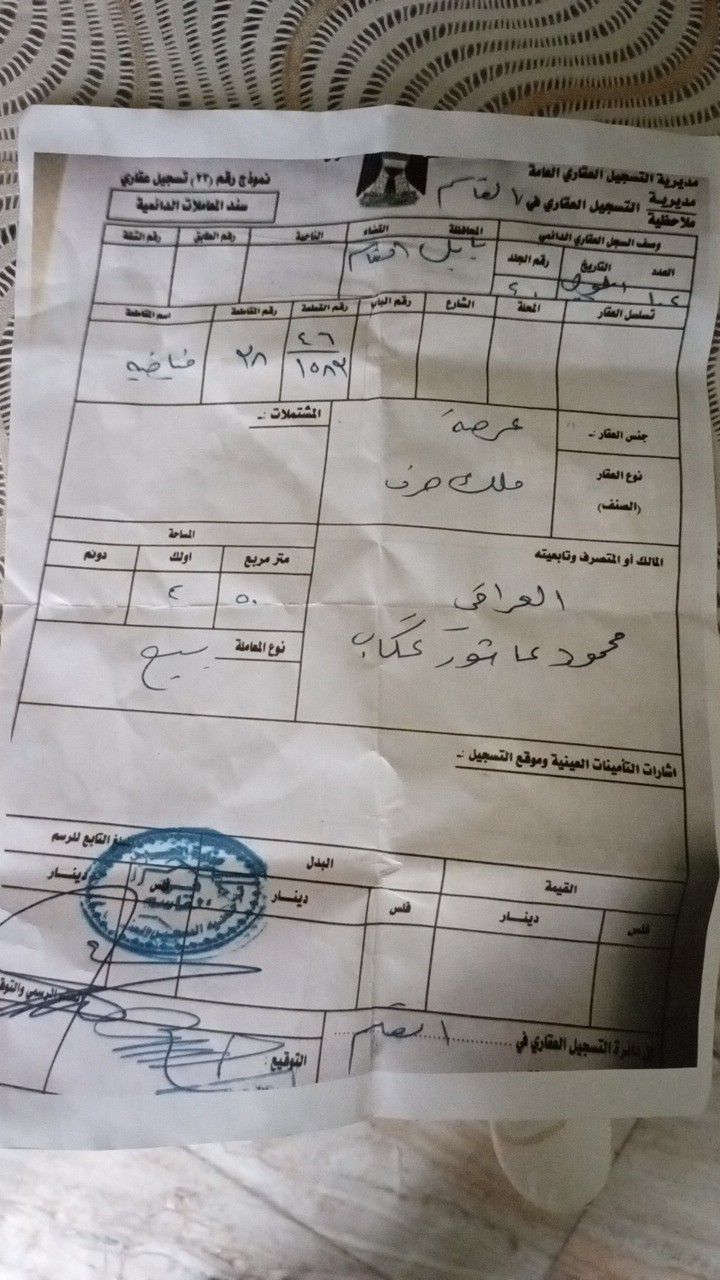 مديرية التسجيل العقاري العامة
مديرية التسجيل العقاري في / القاسم
ملاحظية
نموذج رقم (٢٣) تسجيل عقاري
سند المعاملات الدائمية
وصف السجل العقاري الدائمي المحافظة القضاء الناحية رقم الطابق رقم الشقة
العدد التاريخ رقم الجلد بابل القاسم
تسلسل العقار المحلة الشارع رقم الباب رقم القطعة رقم المقاطعة اسم المقاطعة
٤٦
١٥٨٣ ٣٨
جنس العقار :ـ عرصة المشتملات :ـ
نوع العقار ملك صرف
(الصنف)
المساحة
المالك أو المتصرف وتابعيته متر مربع اولك دونم
العراقي ٥٠ ٢
محمود عاشور عكاب نوع المعاملة بيع
اشارات التأمينات العينية وموقع التسجيل :ـ
القيمة البدل المبلغ التابع للرسم
فلس دينار فلس دينار فلس دينار
دائرة التسجيل العقاري في القاسم التوقيع